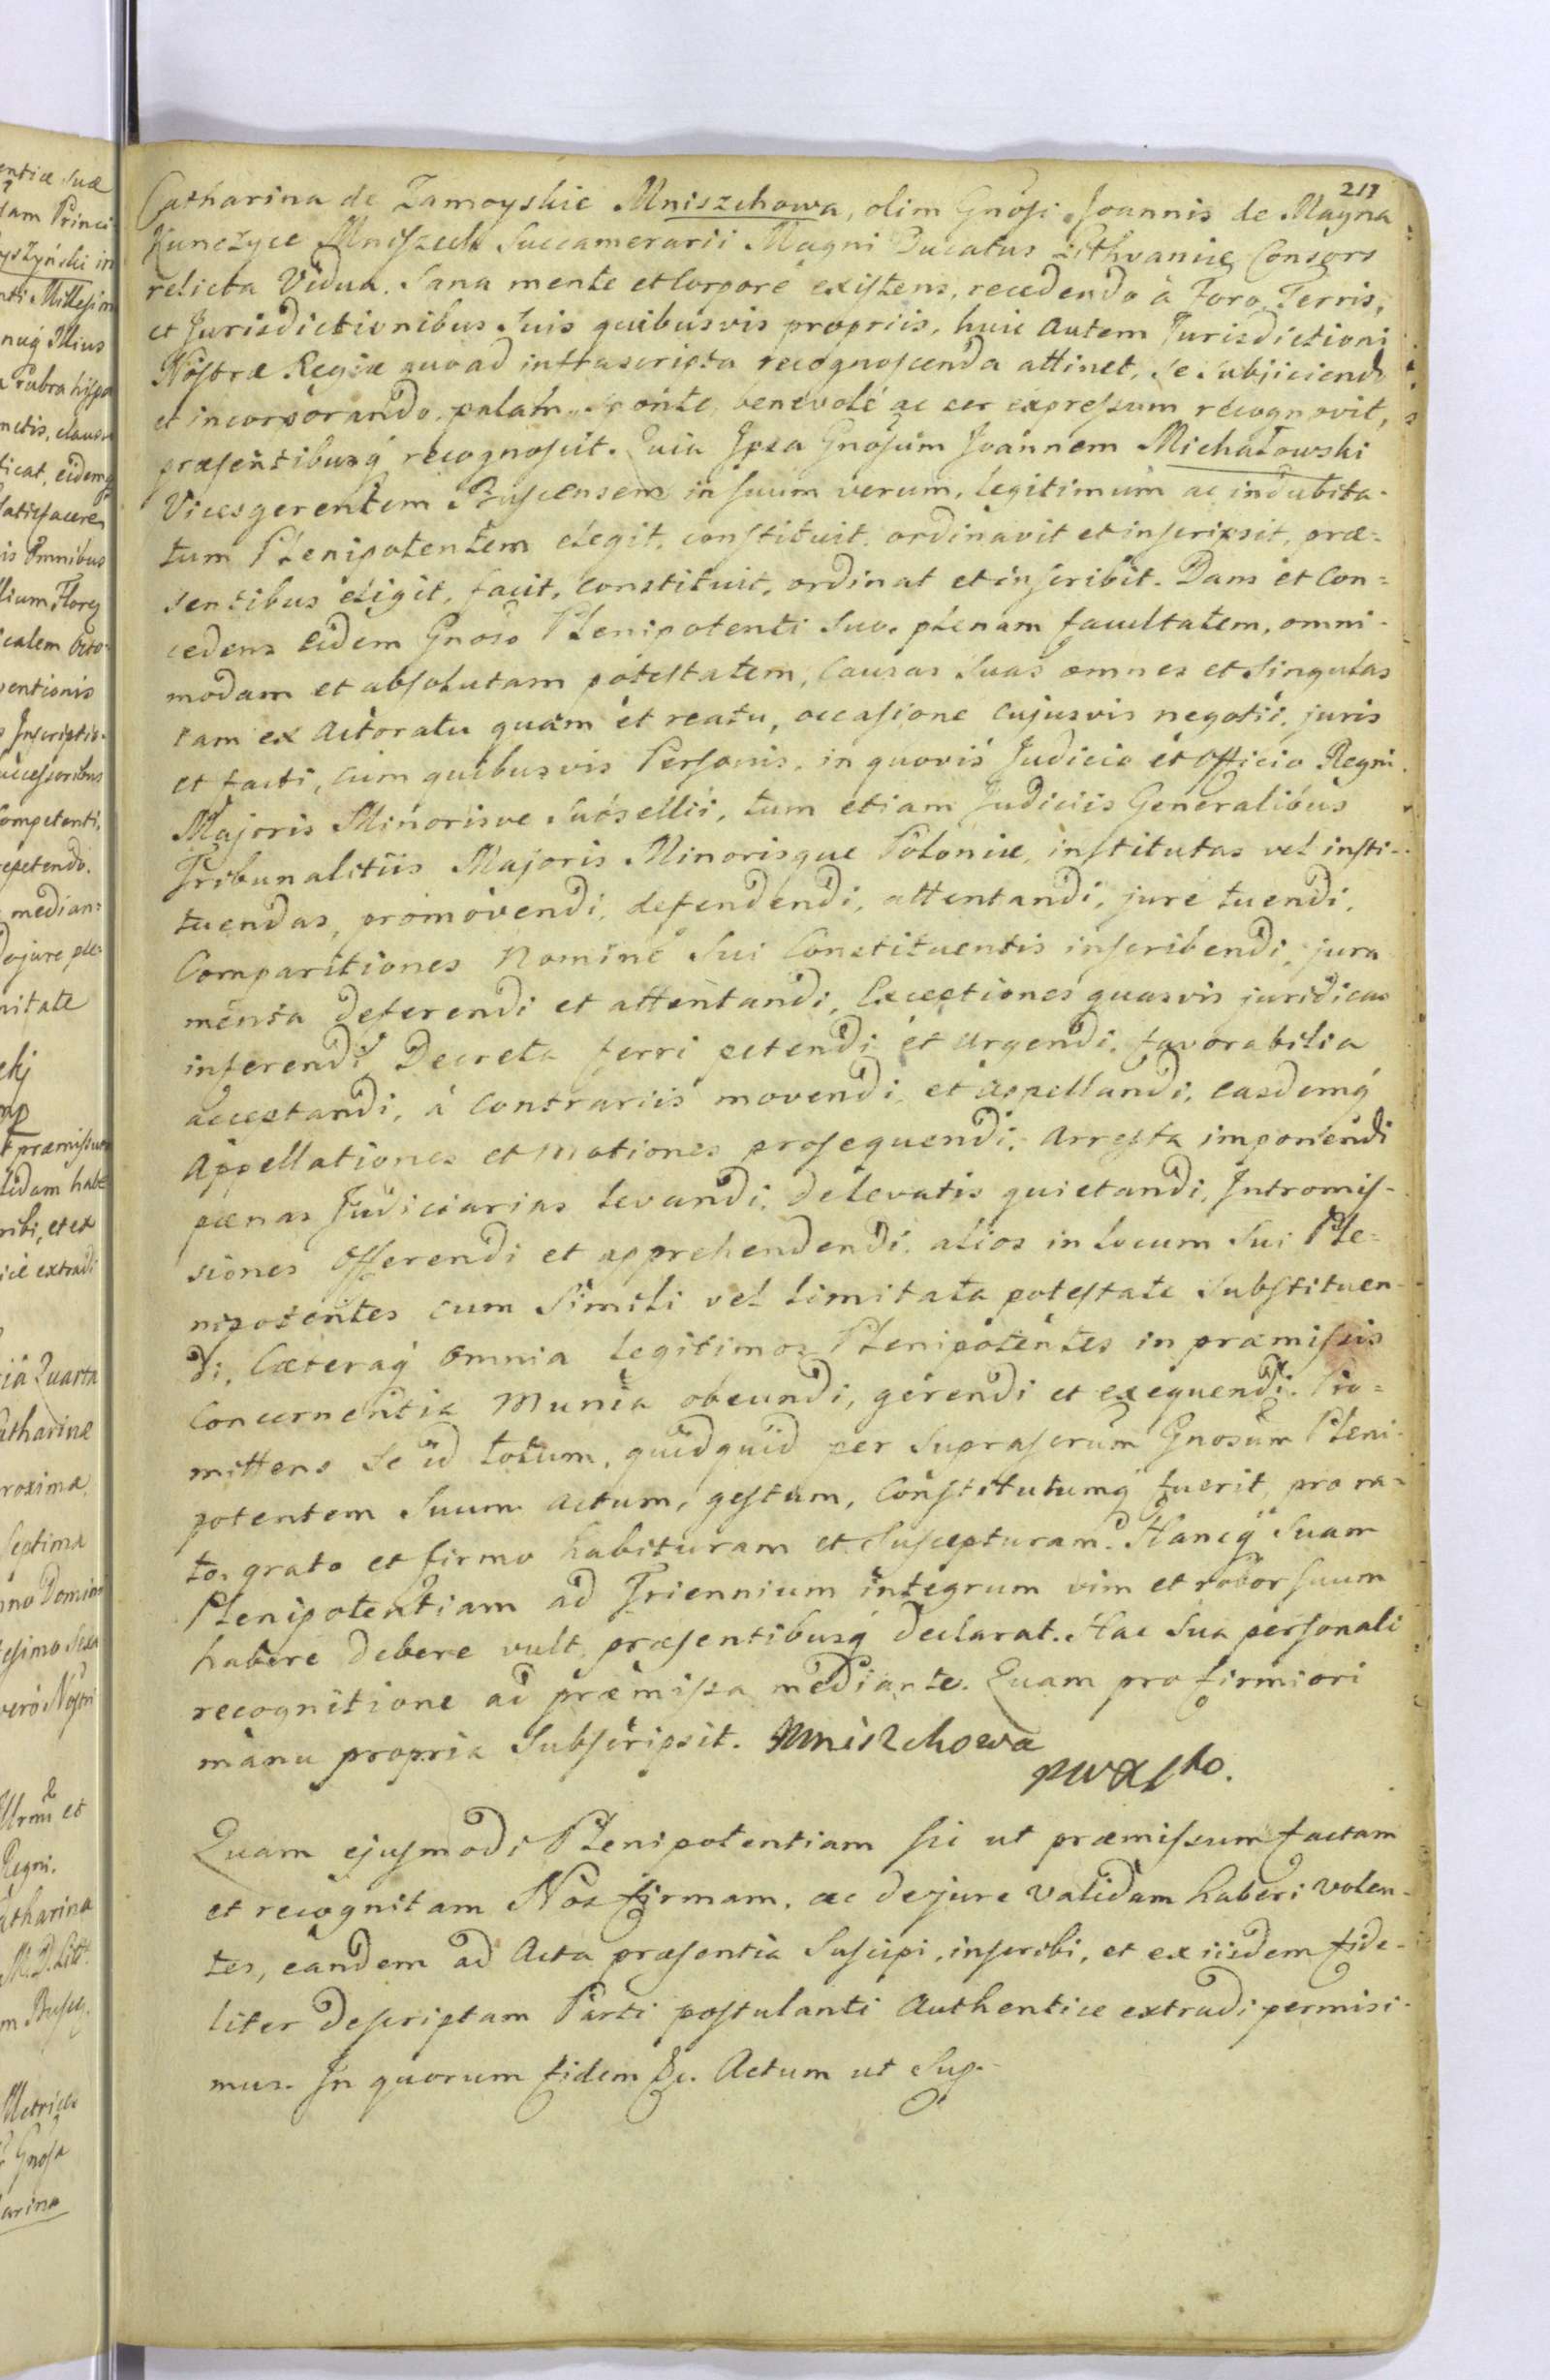 217
Catharina de Zamoyskie Mniszchowa, olim Gnosi Joannis de Magna
Kunczyce Mniszech Succamerarii Magni Ducatus Lithvaniæ Consors
relicta Vidua. Sana mente et Corpore existens, recedendo à Foro, Terris,
et Jurisdictionibus Suis quibusvis propriis, huic autem Jurisdictioni
Nostræ Regiæ quoad infrascripta recognoscenda attinet, se subjiciendo
et incorporando, palam, sponte, benevole ac per expressum recognovit,
præsentibusq recognoscit. Quia Ipsa Gnosum Joannem Michałowski
Vicesgerentem Buscensem in suum verum, legitimum ac indubita-
tum Plenipotentem elegit, constituit, ordinavit et inscripsit, præ-
sentibus eligit, facit, constituit, ordinat et inscribit. Dans et Con=
cedens eidem Gnoso Plenipotenti Suo, plenam facultatem, omni-
modam et absolutam potestatem, Causas Suas omnes et Singulas
tam ex actoratu quàm et reatu, occasione cujusvis negotii, juris
et facti, cum quibusvis Personis, in quovis Judicio et Officio Regni
Majoris Minorisve Subsellii, tum etiam Judiciis Generalibus
Tribunalitiis Majoris Minorisque Poloniæ, institutas vel insti-
tuendas, promovendi, defendendi, attentandi, jure tuendi,
Comparitiones Nomine Sui Constituentis inscribendi, jura
menta deferendi et attentandi, Exceptiones quasvis juridicas
inferendi, Decreta ferri petendi et urgendi, favorabilia
acceptandi, à Contrariis movendi et appellandi, easdemq
Appellationes et Motiones prosequendi, Arresta imponendi
pænas Judiciarias levandi, de levatis quietandi, Intromis-
siones offerendi et apprehendendi, alios in locum Sui Ple=
nipotentes cum Simili vel limitata potestate Substituen-
di, Cæteraq omnia legitimos Plenipotentes in præmissis
Concernentia Munia obeundi, gerendi et exequendi. Pro=
mittens Se id totum, quidquid per Suprascrum Gnosum Pleni-
potentem Suum actum, gestum, Constitutumq fuerit, pro ra-
to, grato et firmo habituram et Suscepturam. Hancq Suam
Plenipotentiam ad Triennium integrum vim et robor suum
habere debere vult, præsentibusq declarat. Hac Sua personali
recognitione ad præmissa mediante. Quam pro firmiori
manu propria Subscripsit. Mniszchowa
Quam ejusmodi Plenipotentiam sic ut præmissum factam
et recognitam Nos firmam, ac de jure validam haberi volen-
tes, eandem ad Acta præsentia Suscipi, inscribi, et ex iisdem fide-
liter descriptam Parti postulanti Authentice extradi permisi-
mus. In quorum fidem &c. Actum ut Sup.